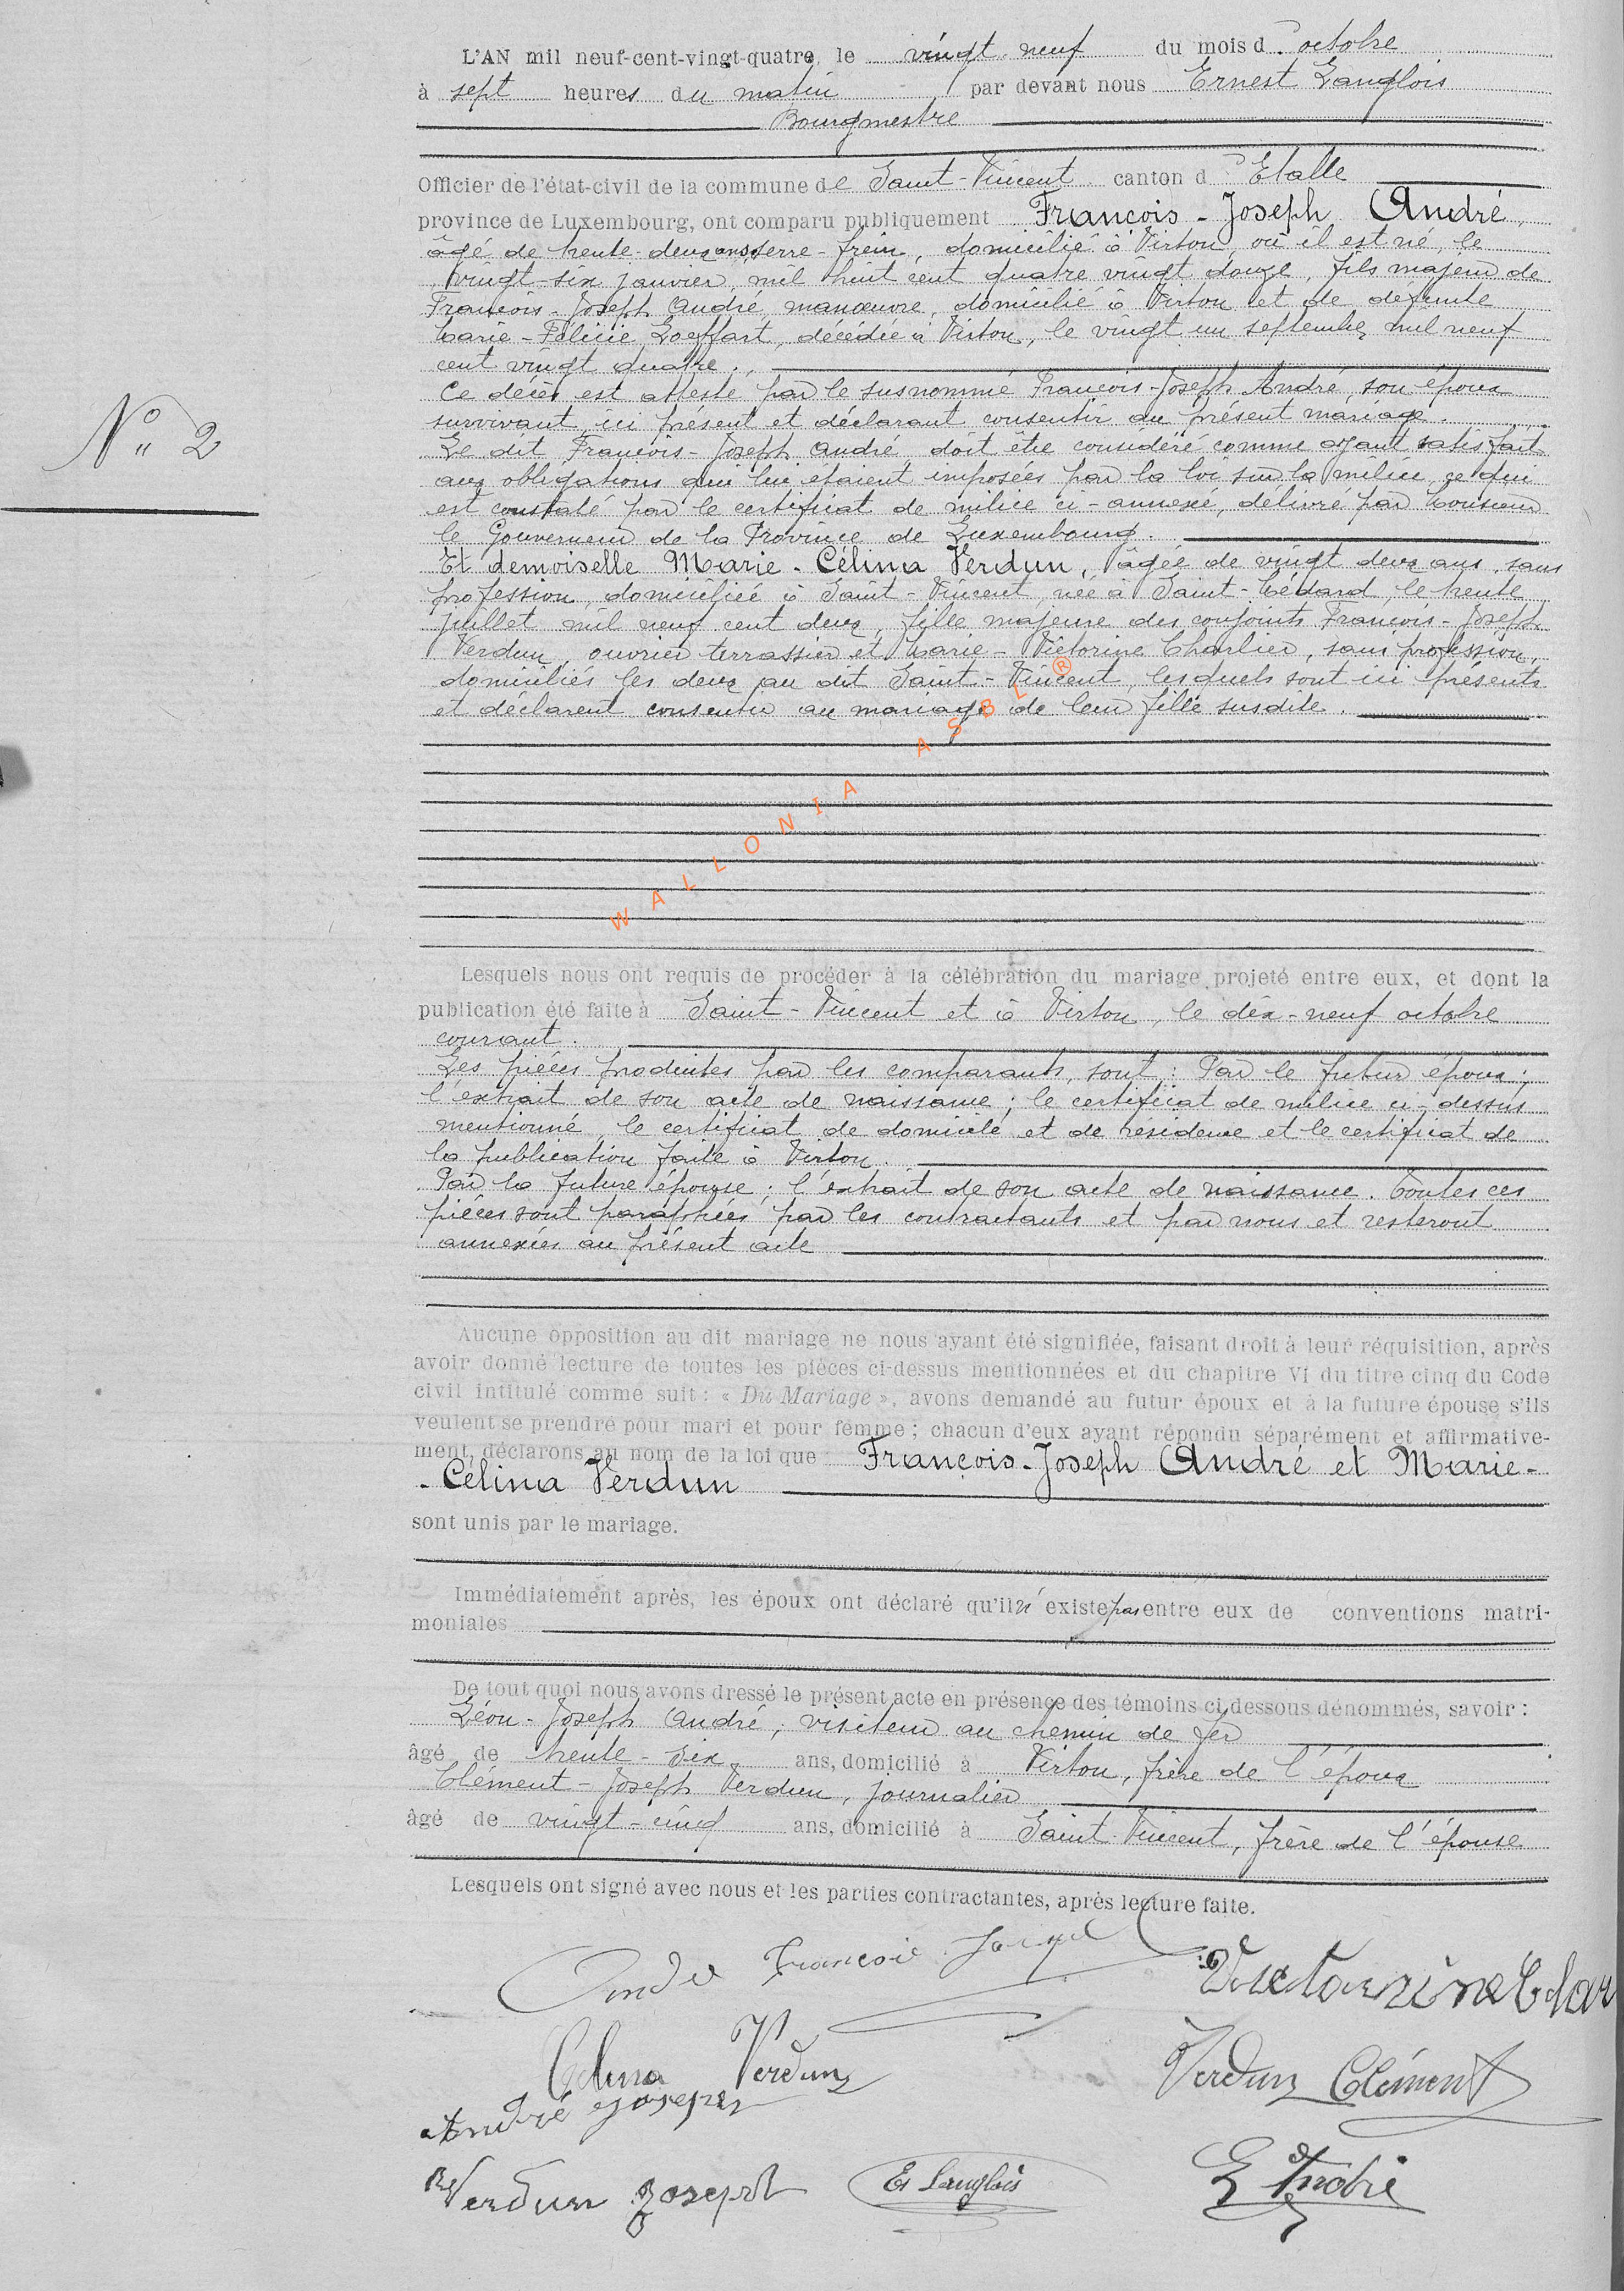 L'AN mil neuf-cent-vingt-quatre, le vingt-neuf du mois d'octobre
à sept heures du matin par devant nous Ernest Langlois
Bourgmestre
Officier de l'état-civil de la commune de Saint-Vincent canton d'Etalle
province de Luxembourg, ont comparu publiquement François-Joseph André,
âgé de trente-deux ans, serre-frein, domicilié à Virton, où il est né, le
vingt-six janvier, mil huit cent quatre vingt douze, fils majeur de
François-Joseph André, manœuvre, domicilié à Virton et de défunte
Marie-Félicie Loeffart, décédée à Virton, le vingt un septembre mil neuf
cent vingt quatre.
Ce décès est attesté par le susnommé François-Joseph André, son époux
survivant, ici présent et déclarant consentir au présent mariage.
Le dit François-Joseph André doit être considéré comme ayant satisfait
aux obligations qui lui étaient imposées par la loi sur la milice, ce qui
est constaté par le certificat de milice ci-annexé, délivré par Monsieur
le Gouverneur de la Province de Luxembourg.
Et demoiselle Marie-Célina Verdun, âgée de vingt deux ans, sans
profession, domiciliée à Saint-Vincent, née à Saint-Médard, le trente
juillet mil neuf cent deux, fille majeure des conjoints François-Joseph
Verdun, ouvrier terrassier et Marie-Victorine Charlier, sans profession,
domiciliés les deux au dit Saint-Vincent, lesquels sont ici présents
et déclarent consentir au mariage de leur fille susdite.
N° 2
WALLONIA ASBL ®
Lesquels nous ont requis de procéder à la célébration du mariage projeté entre eux, et dont la
publication été faite à Saint-Vincent et à Virton, le dix-neuf octobre
courant.
Les pièces produites par les comparants, sont : Par le futur époux ;
l'extrait de son acte de naissance ; le certificat de milice ci-dessus
mentionné, le certificat de domicile et de résidence et le certificat de
la publication faite à Virton.
Par la future épouse ; l'extrait de son acte de naissance. Toutes ces
pièces sont paraphées par les contractants et par nous et resteront
annexées au présent acte
Aucune opposition au dit mariage ne nous ayant été signifiée, faisant droit à leur réquisition, après
avoir donné lecture de toutes les pièces ci-dessus mentionnées et du chapitre VI du titre cinq du Code
civil intitulé comme suit : « Du Mariage », avons demandé au futur époux et à la future épouse s'ils
veulent se prendre pour mari et pour femme ; chacun d'eux ayant répondu séparément et affirmative-
ment, déclarons au nom de la loi que François-Joseph André et Marie-
-Célina Verdun
sont unis par le mariage.
Immédiatement après, les époux ont déclaré qu'il n'existe pas entre eux de conventions matri-
moniales
De tout quoi nous avons dressé le présent acte en présence des témoins ci dessous dénommés, savoir :
Léon-Joseph André, visiteur au chemin de fer
âgé de trente-six ans, domicilié à Virton, frère de l'époux
Clément-Joseph Verdun, journalier
âgé de vingt-cinq ans, domicilié à Saint-Vincent, frère de l'épouse
Lesquels ont signé avec nous et les parties contractantes, après lecture faite.
André François
Célina Verdun
Verdun Clément
André Joseph
Verdun Joseph
E. Langlois
L André